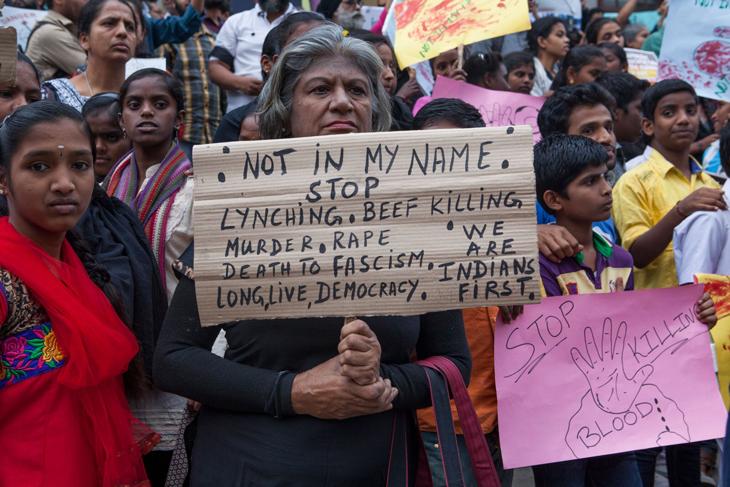 . NOT IN MY NAME.
STOP
LYNCHING. BEEF KILLING.
MURDER. RAPE
DEATH TO FASCISM.
LONG, LIVE, DEMOCRACY.
WE
ARE
INDIANS
FIRST.
STOP
KILLING
BLOOD
NOT IN